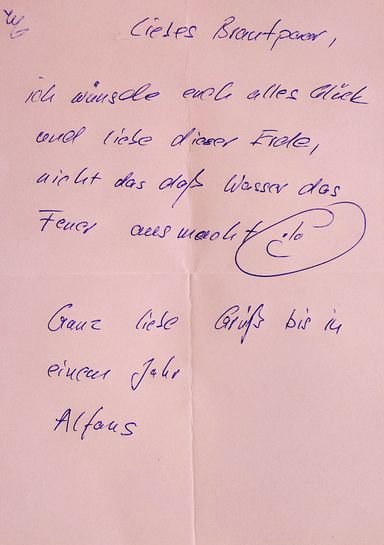 Liebes Brautpaar,
ich wünsche euch alles Glück
und liebe dieser Erde,
nicht das daß Wasser das
Feuer ausmacht
Ganz liebe Grüße bis in
einem Jahr
Alfons